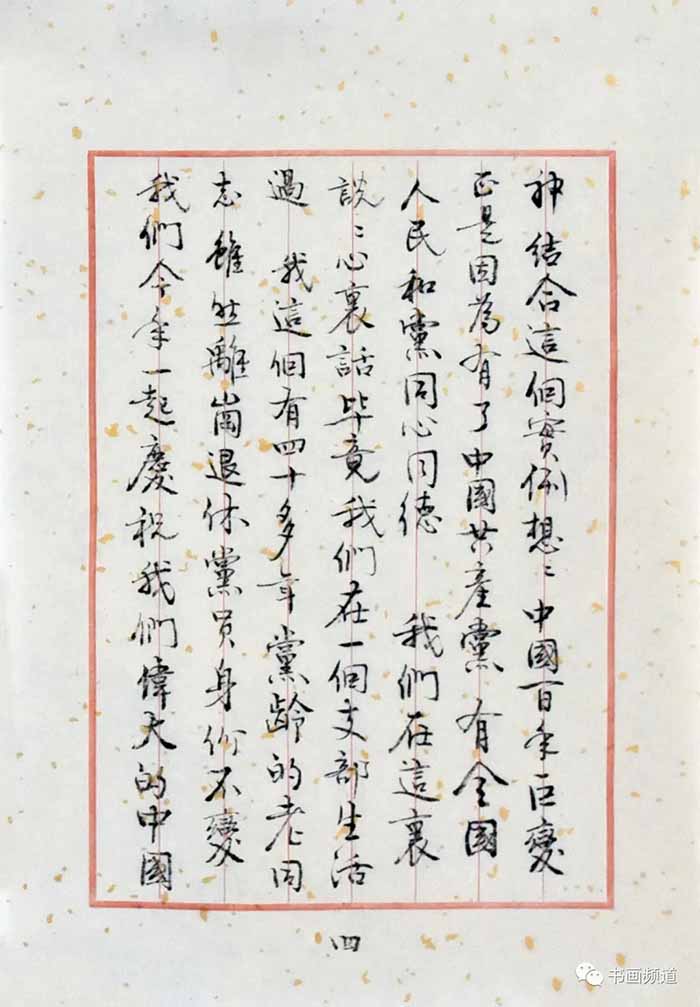 神結合這個實例想〻中國百年巨變
正是因為有了中國共產黨 有全國
人民和黨同心同德 我們在這裏
說〻心裏話毕竟我們在一個支部生活
過 我這個有四十多年黨齡的老同
志雖然離崗退休黨員身份不變
我們今年一起慶祝我們偉大的中國
四
书画频道